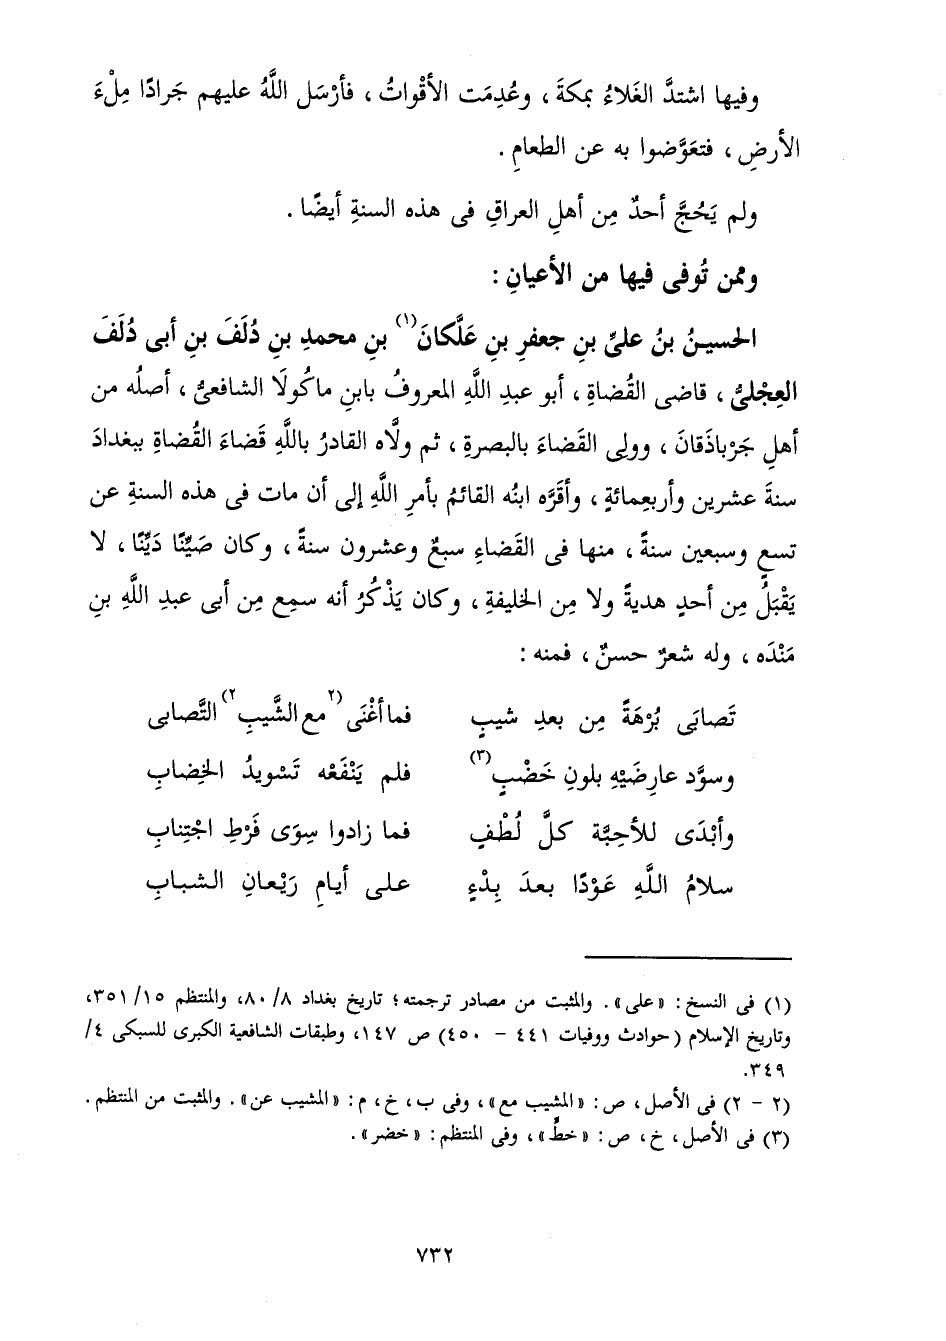 وفيها اشتدَّ الغَلاءُ بمكةَ ، وعُدِمَت الأقْواتُ ، فأرْسَل اللَّهُ عليهم جَرادًا مِلْءَ
الأرضِ ، فتعَوَّضوا به عن الطعامِ .
ولم يَحُجَّ أحدٌ مِن أهلِ العراقِ فى هذه السنةِ أيضًا .
وممن تُوفى فيها من الأعيانِ :
الحسينُ بنُ علىِّ بنِ جعفرِ بنِ عَلَّكانَ(١) بنِ محمدِ بنِ دُلَفَ بنِ أبى دُلَفَ
العِجْلىُّ ، قاضى القُضاةِ ، أبو عبدِ اللَّهِ المعروفُ بابنِ ماكُولَا الشافعىُّ ، أصلُه من
أهلِ جَرْباذَقانَ ، وولِى القَضاءَ بالبصرةِ ، ثم ولَّاه القادرُ باللَّهِ قَضاءَ القُضاةِ ببغدادَ
سنةَ عشرين وأربعِمائةٍ ، وأقَرَّه ابنُه القائمُ بأمرِ اللَّهِ إلى أن مات فى هذه السنةِ عن
تسع وسبعين سنةً ، منها فى القَضاءِ سبعٌ وعشرون سنةً ، وكان صَيِّنًا دَيِّنًا ، لا
يَقْبَلُ مِن أحدٍ هديةً ولا مِن الخليفةِ ، وكان يَذْكُرُ أنه سمِع مِن أبى عبدِ اللَّهِ بنِ
مَنْدَه ، وله شعرٌ حسنٌ ، فمنه :
تَصابَى بُرْهَةً مِن بعدِ شيبٍ فما أغْنَى (٢مع الشَّيبِ٢) التَّصابى
وسوَّد عارِضَيْهِ بلونِ خَضْبٍ(٣) فلم يَنْفَعْه تَسْويدُ الخِضابِ
وأبْدَى للأحِبَّة كلَّ لُطْفٍ فما زادوا سِوَى فَرْطِ اجْتِنابِ
سلامُ اللَّهِ عَوْدًا بعدَ بِدْءٍ على أيامِ رَيْعانِ الشبابِ
(١) فى النسخ : «على» . والمثبت من مصادر ترجمته ؛ تاريخ بغداد ٨/ ٨٠، والمنتظم ١٥/ ٣٥١،
وتاريخ الإسلام (حوادث ووفيات ٤٤١ - ٤٥٠) ص ١٤٧، وطبقات الشافعية الكبرى للسبكى ٤/
٣٤٩.
(٢ - ٢) فى الأصل ، ص : «المشيب مع» ، وفى ب ، خ ، م : «المشيب عن» . والمثبت من المنتظم .
(٣) فى الأصل ، خ ، ص : «خطٍّ» ، وفى المنتظم : «خضر» .
٧٣٢